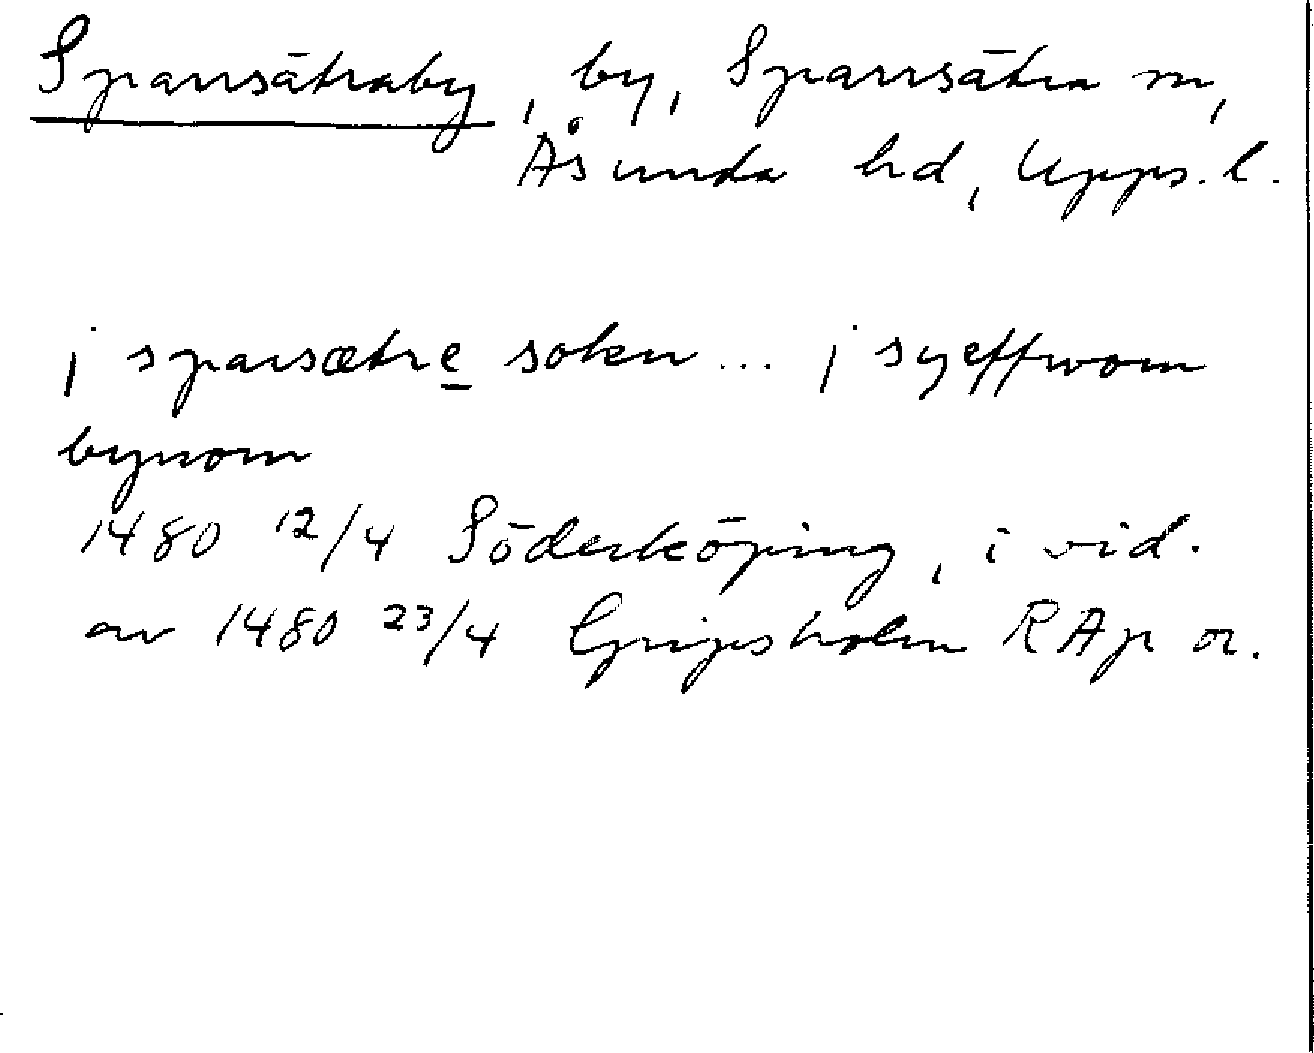 Sparrsätraby, by, Sparrsätra sn,
Åsunda hd, Upps. l.
j sparsætre soken... j syeffwom
bynom
1480 12/4 Söderköping, i vid.
av 1480 23/4 Gripsholm RAp or.